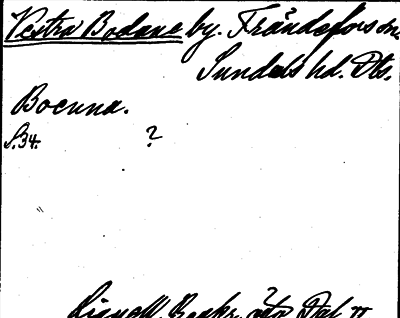 Vestra Bodane by. Frändefors sn.
Sundals hd. Dls.
Bocuna.
S. 34. ?
Lignell, Beskr. öfv. Dal II